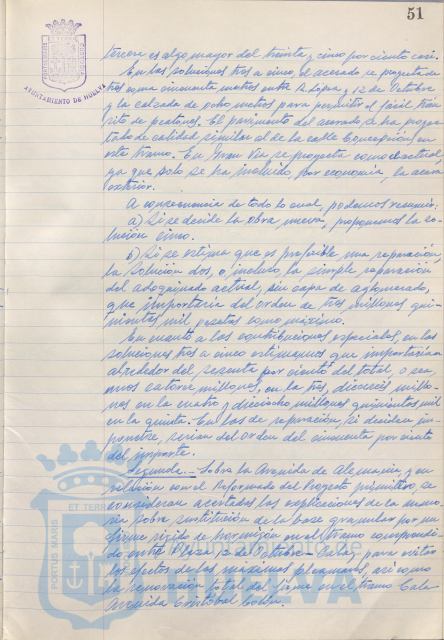 51
AYUNTAMIENTO DE HUELVA
tercera es algo mayor del treinta y cinco por ciento casi.
En las soluciones tres a cinco, el acerado se proyecta de
tres coma cincuenta metros entre B. López y 12 de Octubre
y la calzada de ocho metros para permitir el fácil trán-
sito de peatones. El pavimento del acerado, se ha proyec-
tado de calidad similar al de la calle Concepción, en
este tramo. En Gran Vía se proyecta como el actual
ya que solo se ha incluido, por economía, la acera
exterior.
A consecuencia de todo lo cual, podemos resumir:
a) Si se decide la obra nueva, proponemos la so-
lución cinco.
b) Si se estima que es preferible una reparación,
la solución dos, o, incluso, la simple reparación
del adoquinado actual, sin capa de aglomerado,
que importaría del orden de tres millones qui-
nientas mil pesetas como máximo.
En cuanto a las contribuciones especiales, en las
soluciones tres a cinco estimamos que importarían
alrededor del sesenta por ciento del total, o sea,
unos catorce millones, en la tres, dieciseis millo-
nes en la cuatro y dieciocho millones quinientas mil
en la quinta. En las de reparación, si deciden im-
ponerse, serían del orden del cincuenta por ciento
del importe.
Segundo.- Sobre la Avenida de Alemania, y en
relación con el Reformado del Proyecto primitivo, se
consideran acertadas las explicaciones de la memo-
ria sobre sustitución de la base granular por un
firme rígido de hormigón en el tramo comprendi-
do entre Plaza 12 de Octubre - Cala, para evitar
los efectos de las máximas pleamares, así como
la renovación total del firme en el tramo Cala-
Avenida Cristobal Colón.
PORTUS MARIS ET TERRAE
HUELVA